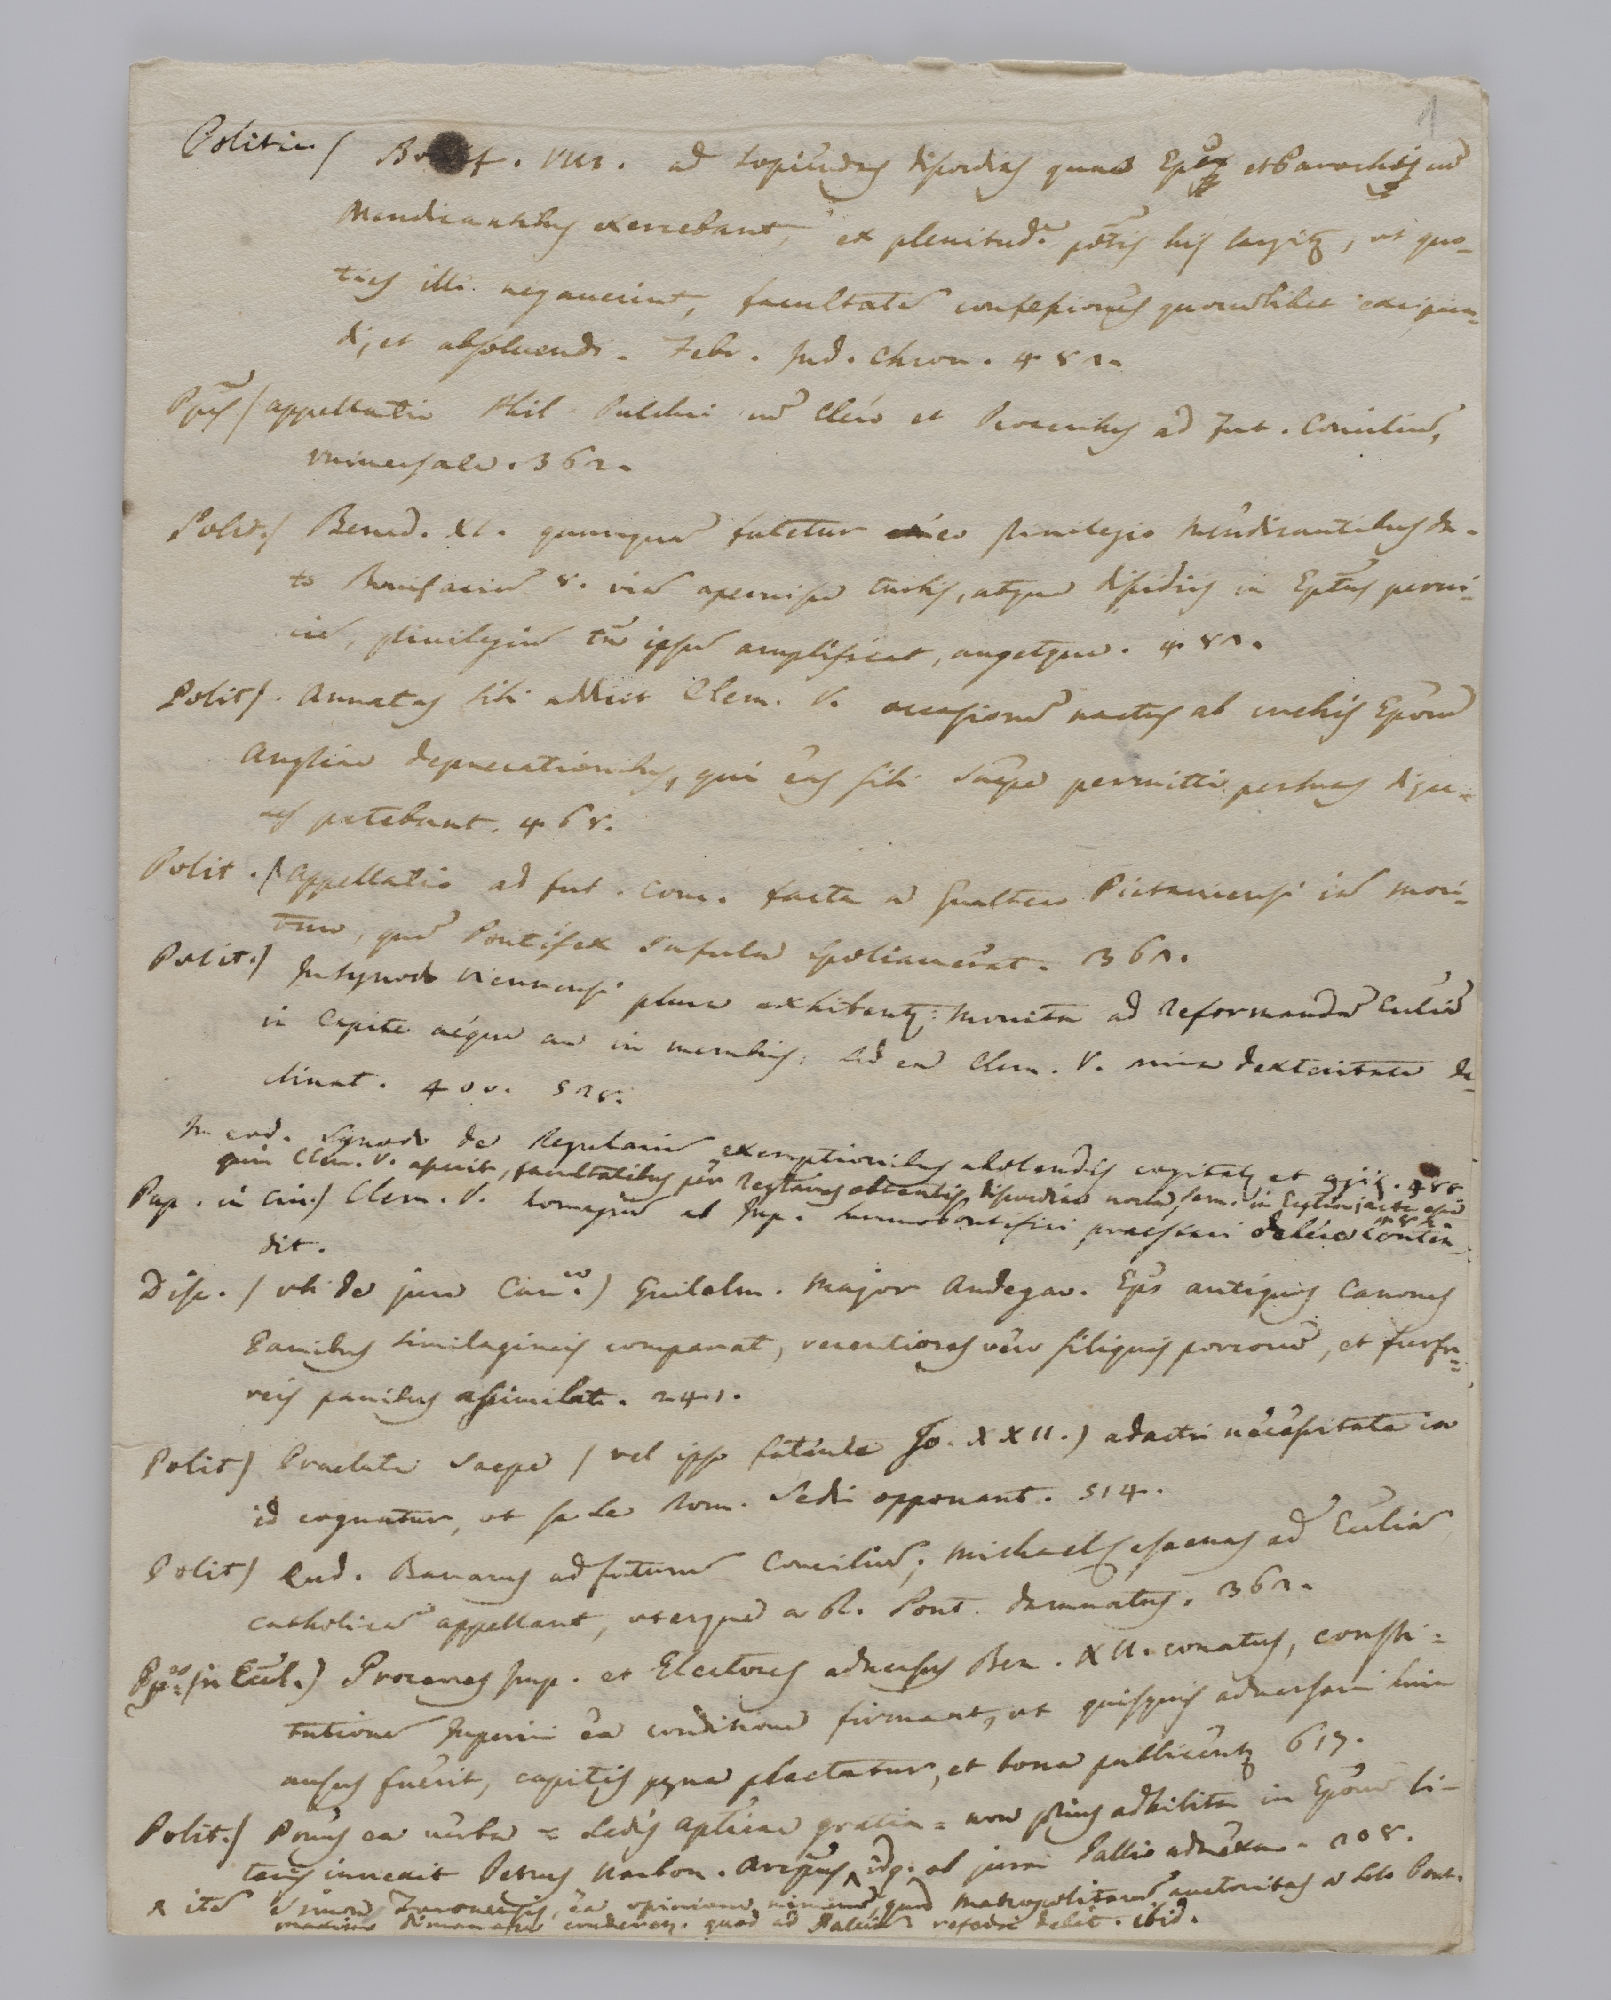 1
Politic/ Bonif. VIII. ad sopiendas discordias quas Epī et Parochi cū
Mendicantibus exercebant, ex plenitud.e ptātis his largitr, ut quo-
ties illi negaverint, facultatē confessiones quorūlibet excipien-
di, et absolvendi. Febr. Ind. Chron. 482.
appellatio Phil. Pulchri cū Clero et Proceribus ad fut. Conciliū
universale. 362.
Polit./ Bened. XI. quamquam fatetur privilegio Mendicantibus da-
to Bonifaciū 8. viā aperuisse turbis, atque dissidiis in
ciē, privilegiū tn̄ ipsū amplificat, augetque. 482.
Polit/. Annatas sibi addicit Clem. V. occasionē nactus ab crebris Epōrū
Angliae deprecationibus, qui eas sibi saepe permitti per suas dioece-
ses petebant. 468.
Polit./ Appellatio ad fut. Conc. facta a Gualtero Pictaviensi iā mori-
turo, quē Pontifex Infula spoliaverat. 362.
Polit./ In Synodo Viennensi plura exhibentr Monita ad Reformandā Eccliā
in Capite aeque ac in membris: sed ea Clem. V. mira dexteritate de-
clinat. 400. 528.
In eod. Synodo de Regulariū exemptionibus abolendis cogitatr et agitr. 488
quin Clem. V. aperit, facultatibus per Regulares obtentis, discordiae
Pap. in Clem. V. homagiū ab Imp. summo Pontifici praestari debere conten-
dit.
Disc. / ubi de jure Can.co) Guilelm. Major Andegav. Epūs antiquos Canones
Panibus similagineis comparat, recentiores vero siliquis porcorū, et furfu-
reis panibus assimilat. 241.
Polit) Praelati saepe / vel ipso fatente Jo. XXII.) adacti necessitate in
id coguntur, ut se se Rom. Sedi opponant. 514.
Polit) Lud. Bavarus ad futurū Conciliū; Michael Cesenas ad Eccliā
catholicā appellant, uterque a R. Pont. damnatus. 362.
Proceres Imp. et Electores adversus Ben. XII. conatus, consti-
tutionē Imperii ea conditione firmant, ut quisquis adversari huic
ausus fuerit, capitis pena plectatur, et bona publicentr 617.
Polit./ Primus ea verba = Sedis Aplicae gratia = non prius adhibita in Epōrū li-
teris invexit Petrus Narbon. Arcpūs, idq. ob jura Pallio adnexa. 208.
ea opinione nimirū, quod Metropolitarū auctoritas a Solo Pont.
quod ad Palliū referri debet. ibid.